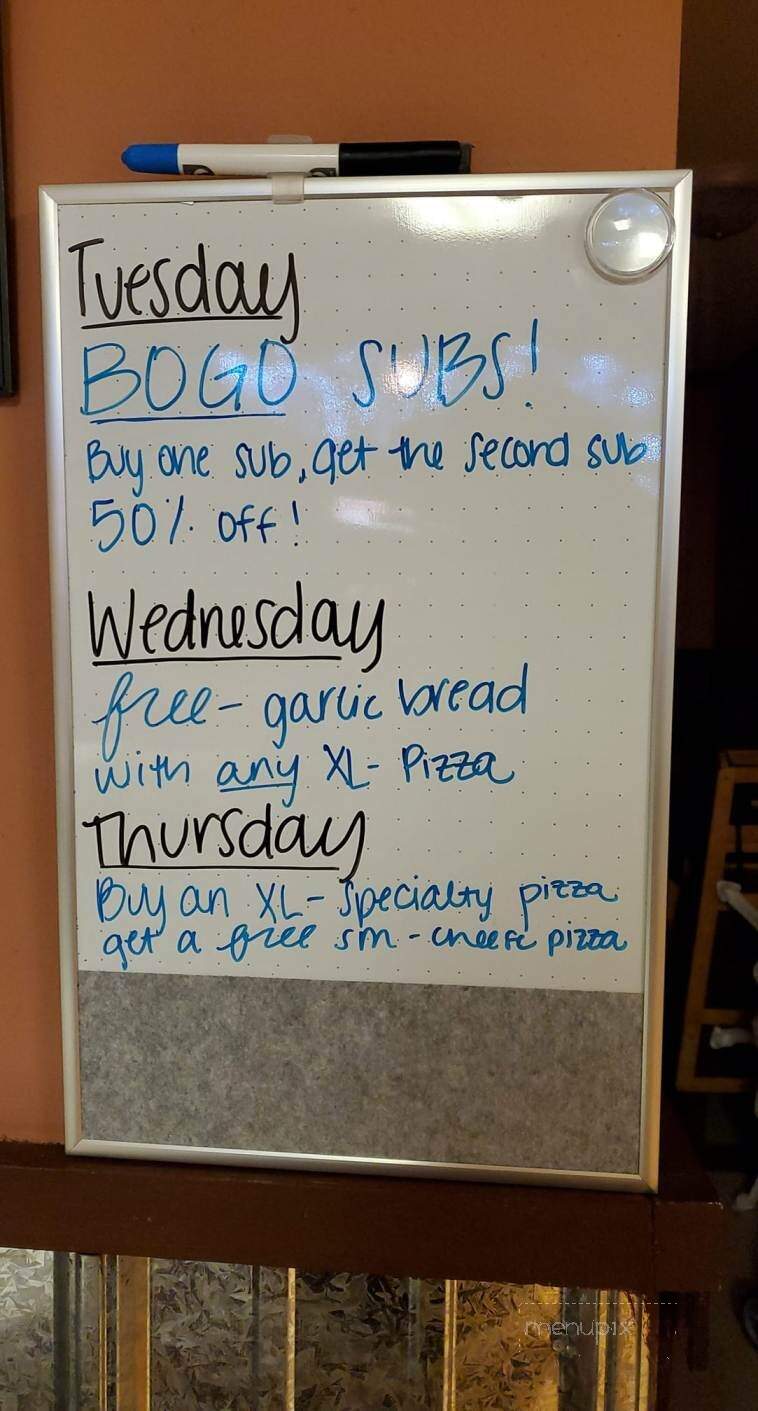 Tuesday
BOGO SUBS!
Buy one sub, get the second sub
50% off!
Wednesday
free - garlic bread
with any XL - Pizza
Thursday
Buy an XL - specialty pizza
get a free sm - cheese pizza
menupix